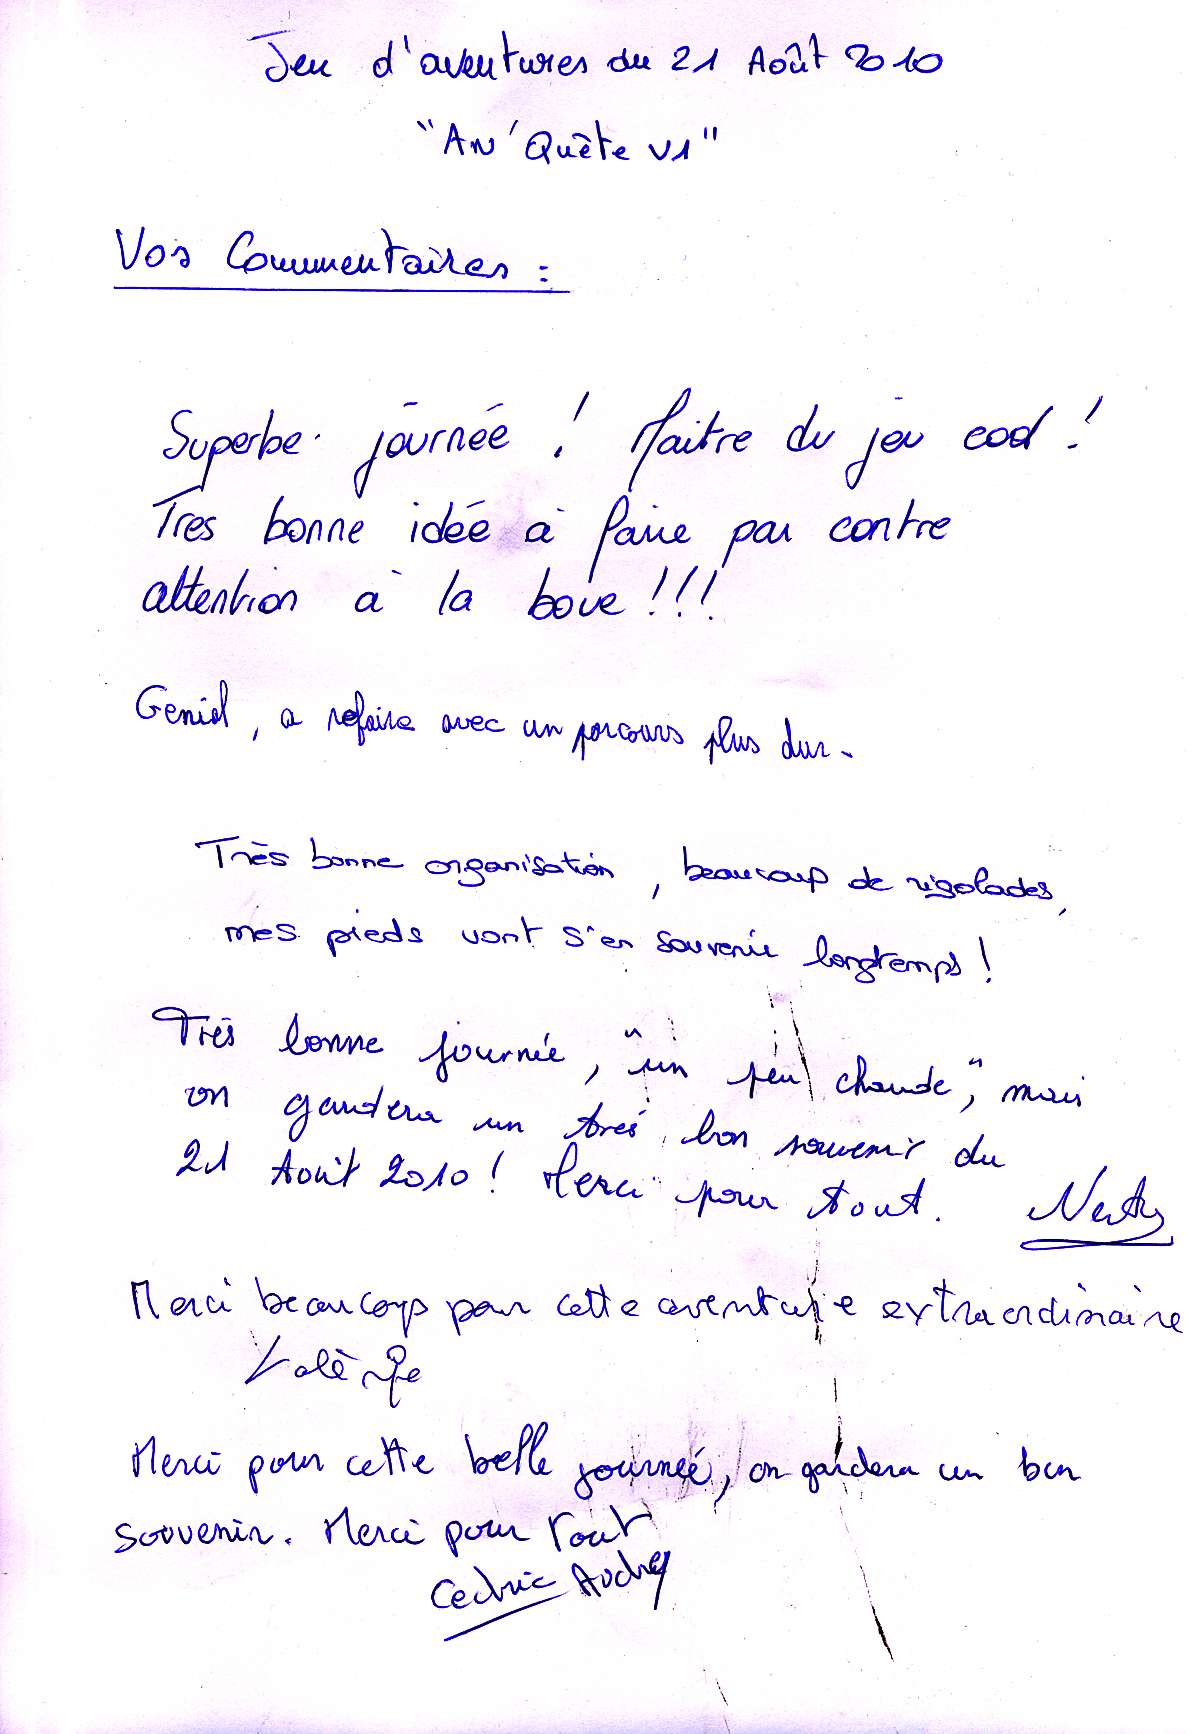 Jeu d'aventures du 21 Août 2010
"AN'Quête V1"
Vos Commentaires :
Superbe journée ! Maitre du jeu cool !
Tres bonne idée à faire par contre
attention à la boue !!!
Genial, a refaire avec un parcours plus dur.
Très bonne organisation, beaucoup de rigolades,
mes pieds vont s'en souvenir longtemps !
Très bonne journée, "un peu chaude", mais
on gardera un très bon souvenir du
21 Août 2010 ! Merci pour tout.
Merci beaucoup pour cette aventure extraordinaire
Merci pour cette belle journeé, on gardera un bon
souvenir. Merci pour tout
Cedric Audrey